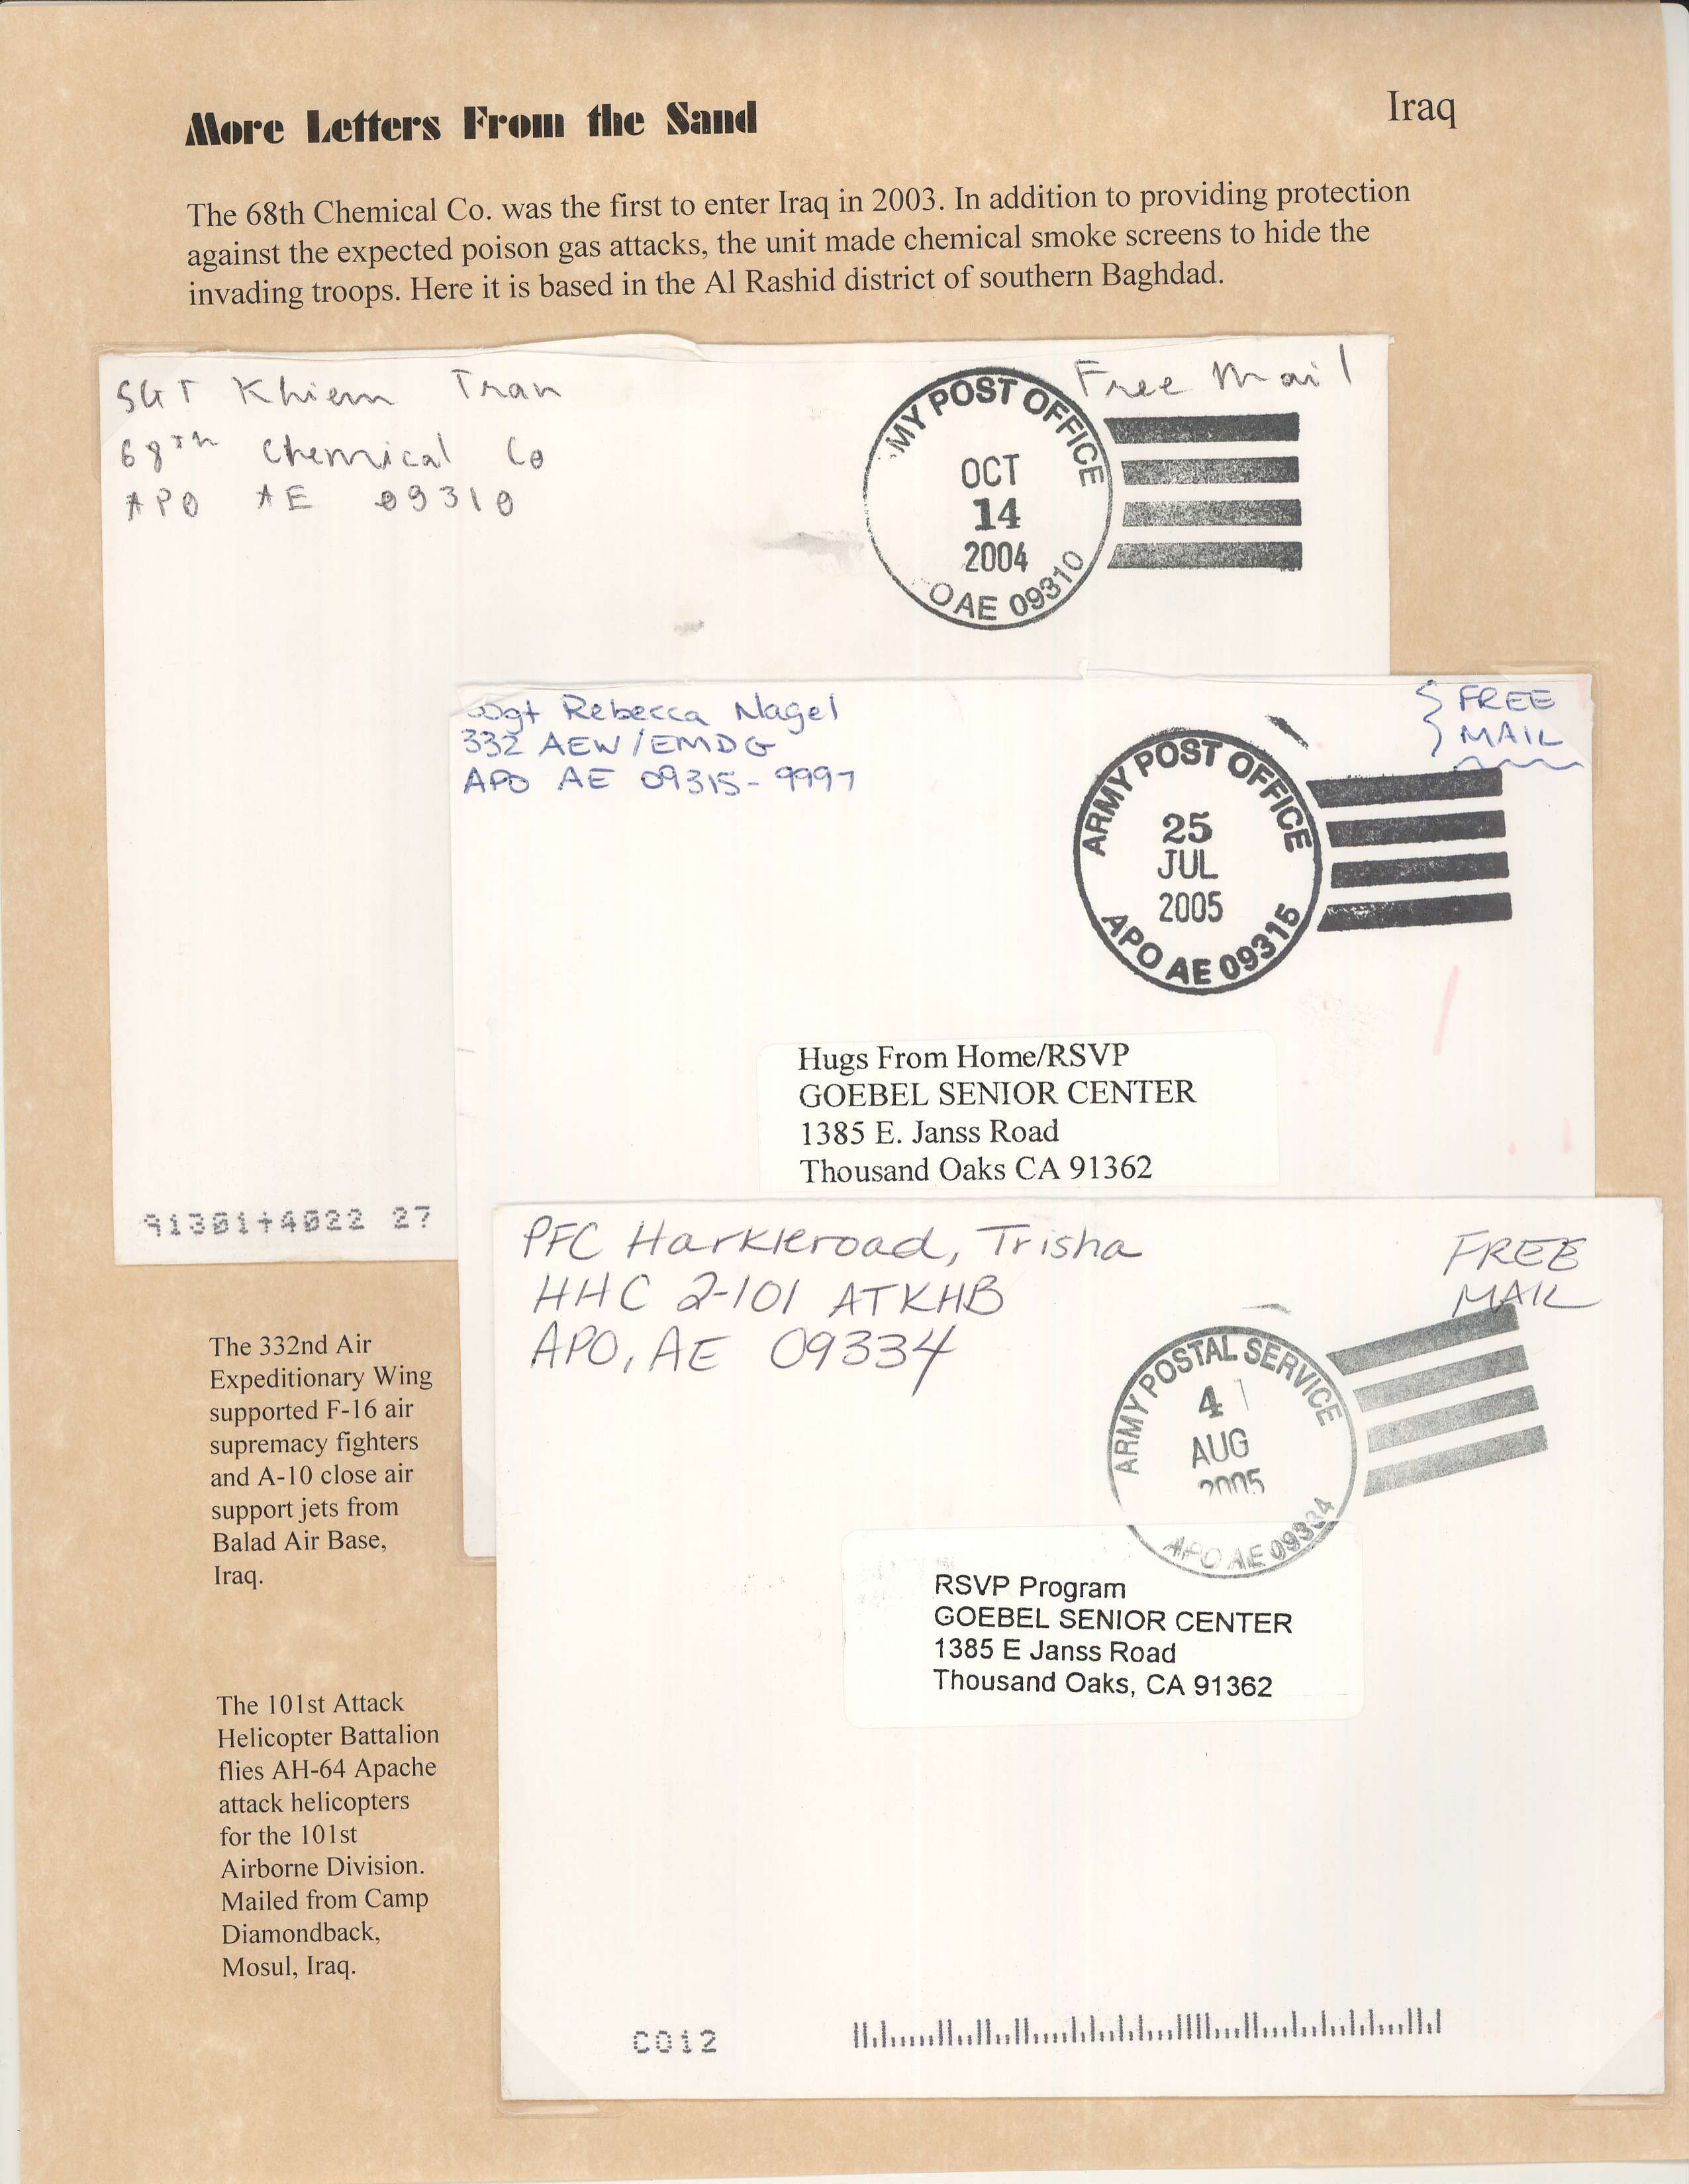 More Letters From the Sand
Iraq
The 68th Chemical Co. was the first to enter Iraq in 2003. In addition to providing protection
against the expected poison gas attacks, the unit made chemical smoke screens to hide the
invading troops. Here it is based in the Al Rashid district of southern Baghdad.
SGT Khiem Tran
68TH Chemical Co
APO AE 09310
Free Mail
MY POST OFFICE
OCT
14
2004
O AE 09310
91301+4022 27
SSgt Rebecca Nagel
332 AEW/EMDG
APO AE 09315-9997
FREE
MAIL
ARMY POST OFFICE
25
JUL
2005
APO AE 09315
Hugs From Home/RSVP
GOEBEL SENIOR CENTER
1385 E. Janss Road
Thousand Oaks CA 91362
PFC Harkleroad, Trisha
HHC 2-101 ATKHB
APO, AE 09334
FREE
MAIL
ARMY POSTAL SERVICE
4
AUG
2005
APO AE 09334
RSVP Program
GOEBEL SENIOR CENTER
1385 E Janss Road
Thousand Oaks, CA 91362
C012
The 332nd Air
Expeditionary Wing
supported F-16 air
supremacy fighters
and A-10 close air
support jets from
Balad Air Base,
Iraq.
The 101st Attack
Helicopter Battalion
flies AH-64 Apache
attack helicopters
for the 101st
Airborne Division.
Mailed from Camp
Diamondback,
Mosul, Iraq.